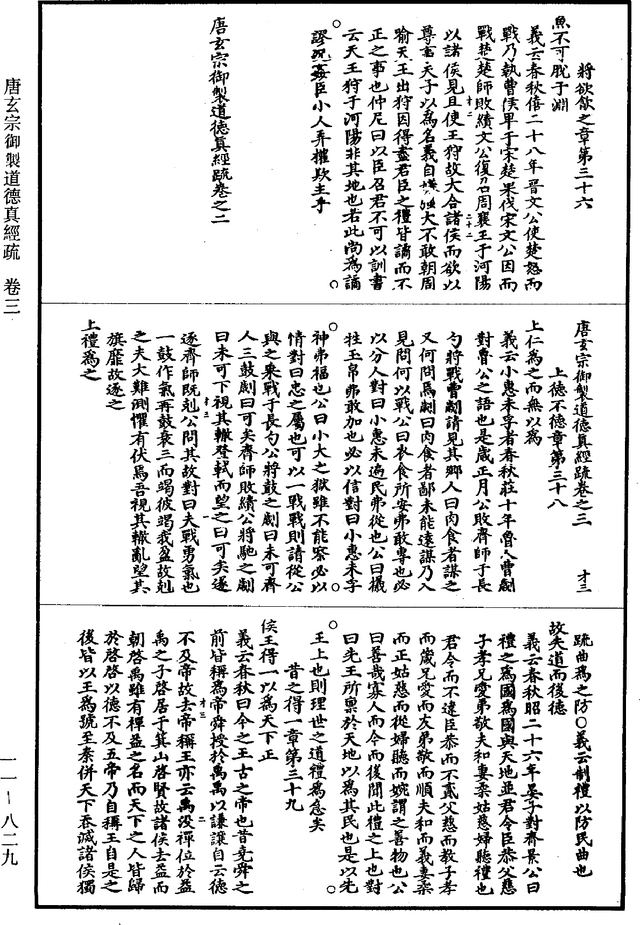 唐玄宗御製道德真經疏 卷三
將欲歙之章第三十六
魚不可脫于淵
義云春秋僖二十八年晉文公使楚怒而
戰乃執曹侯畀于宋楚果伐宋文公因而
戰楚楚師敗績文公復召周襄王于河陽
以諸侯見且使王狩故大合諸侯而欲以
尊事天子以為名義自嫌強大不敢朝周
喻天王出狩因得盡君臣之禮皆譎而不
正之事也仲尼曰以臣召君不可以訓書
云天王狩于河陽非其地也若此尚為譎
謬況姦臣小人弄權欺主乎
唐玄宗御製道德真經疏卷之二
唐玄宗御製道德真經疏卷之三 才三
上德不德章第三十八
上仁為之而無以為
義云小惠未孚者春秋莊十年魯人曹劌
對魯公之語也是歲正月公敗齊師于長
勺將戰曹劌請見其鄉人曰肉食者謀之
又何問焉劌曰肉食者鄙未能遠謀乃入
見問何以戰公曰衣食所安弗敢專也必
以分人對曰小惠未遍民弗從也公曰犧
牲玉帛弗敢加也必以信對曰小惠未孚
神弗福也公曰小大之獄雖不能察必以
情對曰忠之屬也可以一戰戰則請從公
與之乘戰于長勺公將鼓之劌曰未可齊
人三鼓劌曰可矣齊師敗績公將馳之劌
曰未可下視其轍登軾而望之曰可矣遂
逐齊師既剋公問其故對曰夫戰勇氣也
一鼓作氣再鼓衰三而竭彼竭我盈故剋
之夫大難測懼有伏焉吾視其轍亂望其
旗靡故逐之
上禮為之
疏曲為之防○義云制禮以防民曲也
故失道而後德
義云春秋昭二十六年晏子對齊景公曰
禮之為國為國與天地並君令臣恭父慈
子孝兄愛弟敬夫和妻柔姑慈婦聽禮也
君令而不違臣恭而不貳父慈而教子孝
而箴兄愛而友弟敬而順夫和而義妻柔
而正姑慈而從婦聽而婉謂之善物也公
曰善哉寡人而今而後聞此禮之上也對
曰先王所禀於天地以為其民也是以先
王上也則理世之道禮為急矣
昔之得一章第三十九
侯王得一以為天下正
義云春秋曰今之王古之帝也昔堯舜之
前皆稱為帝舜授於禹禹以謙讓自云德
不及帝故去帝稱王亦云禹没禪位於益
禹之子啓居于箕山啓賢故諸侯去益而
朝啓禹雖有禪益之名而天下之人皆歸
於啓啓以德不及五帝乃自稱王自是之
後皆以王為號至秦併天下吞滅諸侯獨
一一－八二九